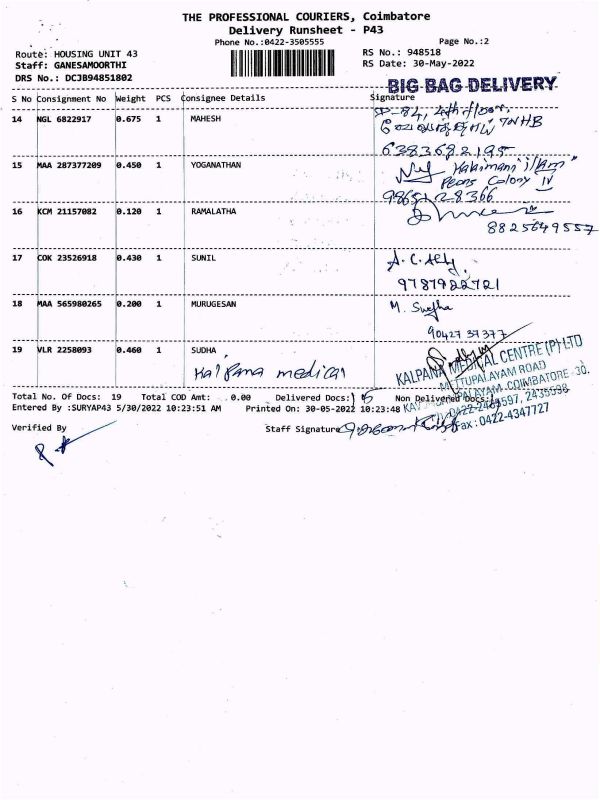 THE PROFESSIONAL COURIERS, Coimbatore
Delivery Runsheet - P43
Phone No.:0422-3505555 Page No.:2
Route: HOUSING UNIT 43 RS No.: 948518
Staff: GANESAMOORTHI RS Date: 30-May-2022
DRS No.: DCJB94851802
BIG BAG DELIVERY
S No Consignment No Weight PCS Consignee Details Signature
14 NGL 6822917 0.675 1 MAHESH
TNHB
6383682195
15 MAA 287377209 0.450 1 YOGANATHAN
Peons Colony IV
9865128366
16 KCM 21157082 0.120 1 RAMALATHA
8825649557
17 COK 23526918 0.430 1 SUNIL
9787922721
18 MAA 565980265 0.200 1 MURUGESAN M.
9042737377
19 VLR 2258093 0.460 1 SUDHA
Kalpana medical
KALPANA MEDICAL CENTRE (P) LTD
METTUPALAYAM ROAD
COIMBATORE-30.
Fax: 0422-4347727
Total No. Of Docs: 19 Total COD Amt: 0.00 Delivered Docs: Non Delivered Docs:
Entered By :SURYAP43 5/30/2022 10:23:51 AM Printed On: 30-05-2022 10:23:48
Verified By Staff Signature